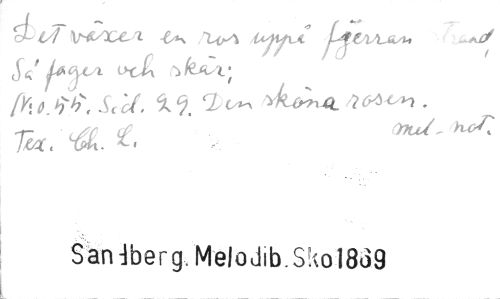 Det växer en ros uppå fjerran strand,
Så fager och skär;
N:o. 55. Sid. 29. Den sköna rosen.
mel-not.
Tex. Ch. L.
Sandberg. Melodib. Sko1869